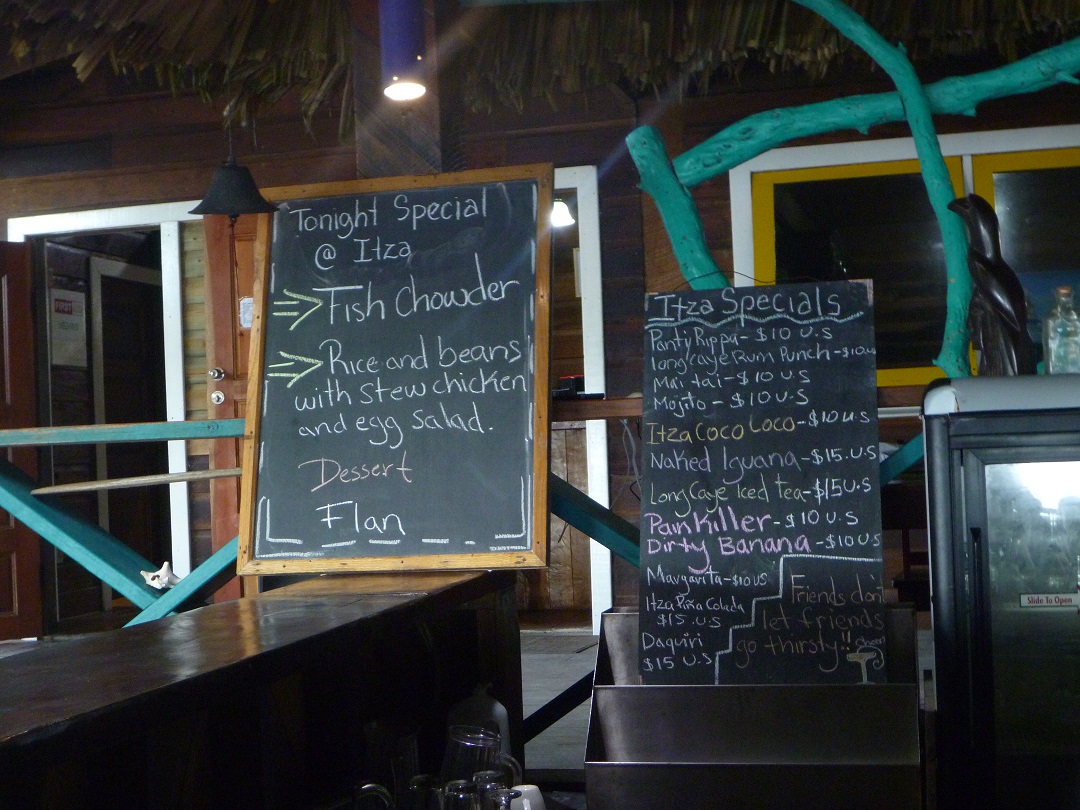 Tonight Special
@ Itza
Fish Chowder
Rice and beans
with stew chicken
and egg salad.
Dessert
Flan
Itza Specials
Panty Rippa - $10 U.S
Long Caye Rum Punch - $10
Mai tai - $10 U.S
Mojito - $10 U.S
Itza Coco Loco - $10 U.S
Naked Iguana - $15 U.S
Long Caye Iced tea - $15 U.S
Pain Killer - $10 U.S
Dirty Banana - $10 U.S
Margarita - $10 US
Itza Piña Colada
$15 U.S
Daquiri
$15 U.S
Friends don't
let friends
go thirsty!!
Slide To Open